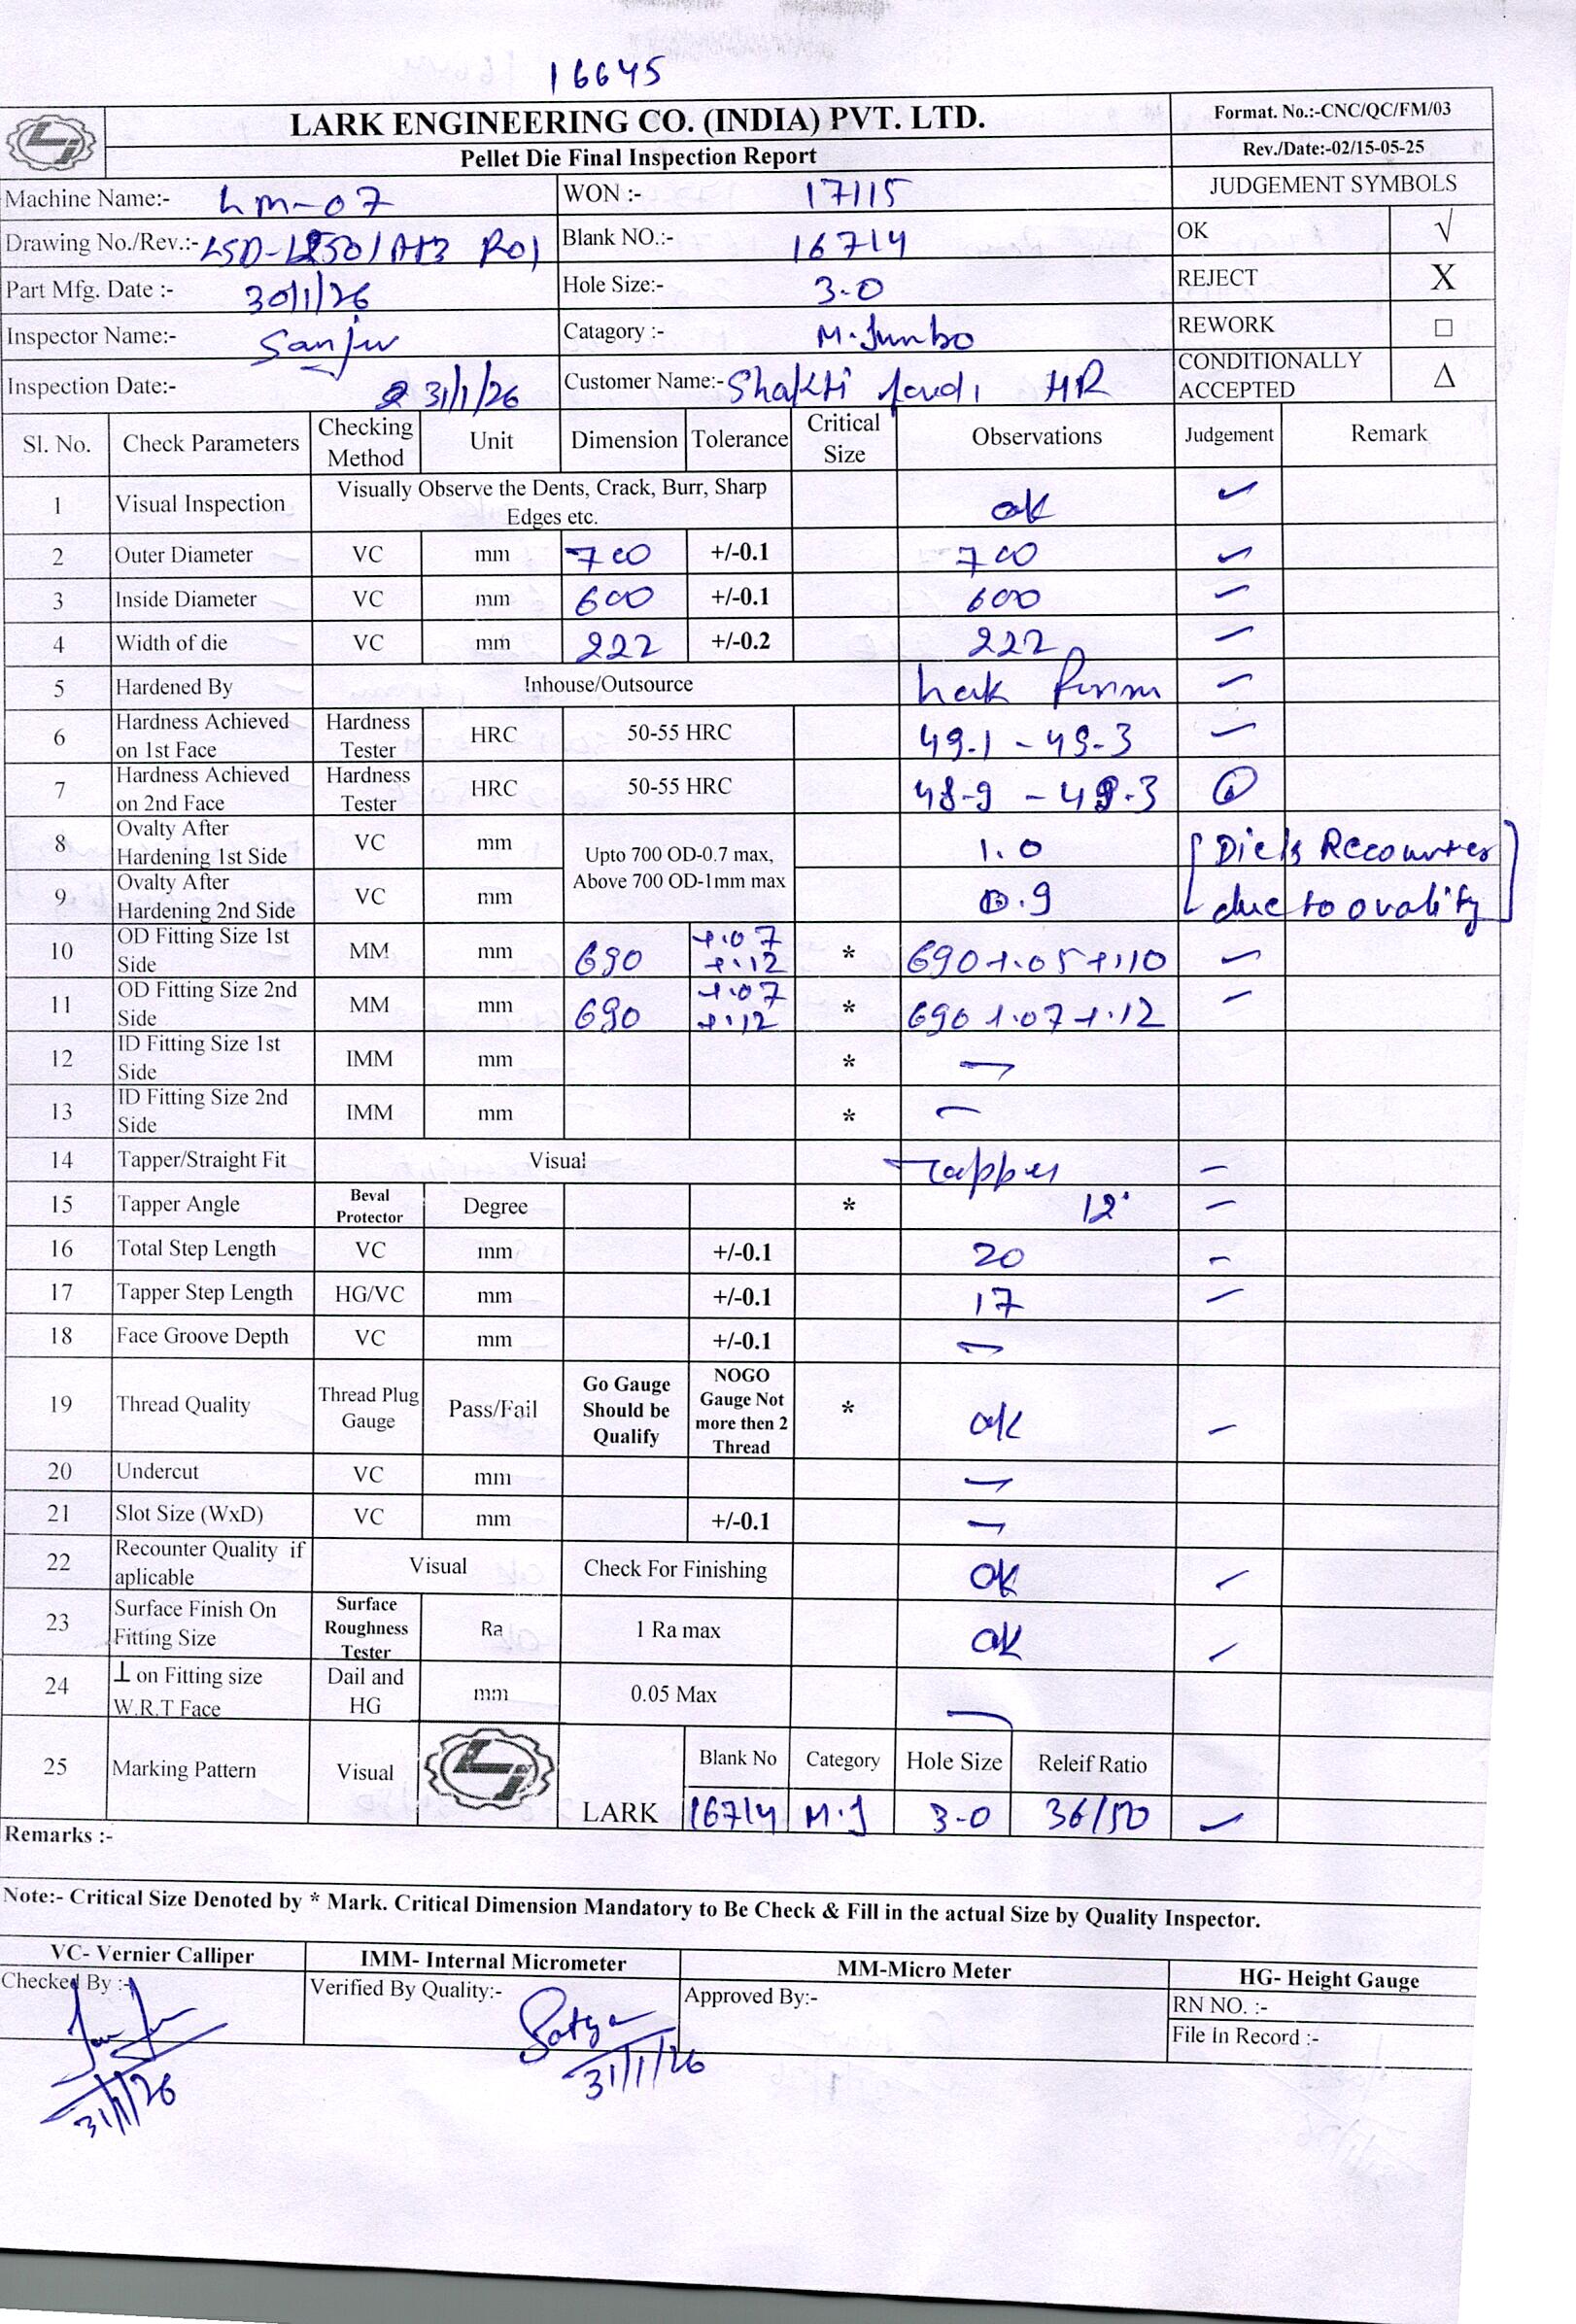 16645
LARK ENGINEERING CO. (INDIA) PVT. LTD. Format. No.:-CNC/QC/FM/03
Pellet Die Final Inspection Report Rev./Date:-02/15-05-25
Machine Name:- Lm-07 WON :- 17115 JUDGEMENT SYMBOLS
Drawing No./Rev.:- R01 Blank NO.:- 16714 OK √
Part Mfg. Date :- 30/1/26 Hole Size:- 3.0 REJECT X
Inspector Name:- Sanju Catagory :- M.Jumbo REWORK □
Inspection Date:- 31/1/26 Customer Name:- Shakti HR CONDITIONALLY ACCEPTED Δ
Sl. No. Check Parameters Checking Method Unit Dimension Tolerance Critical Size Observations Judgement Remark
1 Visual Inspection Visually Observe the Dents, Crack, Burr, Sharp Edges etc. ok ✓
2 Outer Diameter VC mm 700 +/-0.1 700 ✓
3 Inside Diameter VC mm 600 +/-0.1 600 ✓
4 Width of die VC mm 222 +/-0.2 222 ✓
5 Hardened By Inhouse/Outsource ✓
6 Hardness Achieved on 1st Face Hardness Tester HRC 50-55 HRC 49.1 - 49.3 ✓
7 Hardness Achieved on 2nd Face Hardness Tester HRC 50-55 HRC 48.9 - 49.3
8 Ovalty After Hardening 1st Side VC mm Upto 700 OD-0.7 max, 1.0 Die is Recounter
9 Ovalty After Hardening 2nd Side VC mm Above 700 OD-1mm max 0.9 due to ovality
10 OD Fitting Size 1st Side MM mm 690 +.07 +.12 * 690 +.05 +.10 ✓
11 OD Fitting Size 2nd Side MM mm 690 +.07 +.12 * 690 +.07 +.12 ✓
12 ID Fitting Size 1st Side IMM mm * —
13 ID Fitting Size 2nd Side IMM mm * —
14 Tapper/Straight Fit Visual Tapper ✓
15 Tapper Angle Beval Protector Degree * 12° ✓
16 Total Step Length VC mm +/-0.1 20 ✓
17 Tapper Step Length HG/VC mm +/-0.1 17 ✓
18 Face Groove Depth VC mm +/-0.1 —
19 Thread Quality Thread Plug Gauge Pass/Fail Go Gauge Should be Qualify NOGO Gauge Not more then 2 Thread * ok ✓
20 Undercut VC mm —
21 Slot Size (WxD) VC mm +/-0.1 —
22 Recounter Quality if aplicable Visual Check For Finishing ok ✓
23 Surface Finish On Fitting Size Surface Roughness Tester Ra 1 Ra max ok ✓
24 ⊥ on Fitting size W.R.T Face Dail and HG mm 0.05 Max —
25 Marking Pattern Visual LARK Blank No Category Hole Size Releif Ratio
16714 M.J 3.0 36/50 ✓
Remarks :-
Note:- Critical Size Denoted by * Mark. Critical Dimension Mandatory to Be Check & Fill in the actual Size by Quality Inspector.
VC- Vernier Calliper IMM- Internal Micrometer MM-Micro Meter HG- Height Gauge
Checked By :- Verified By Quality:- Satya Approved By:- RN NO. :-
File in Record :-
31/1/26 31/1/26